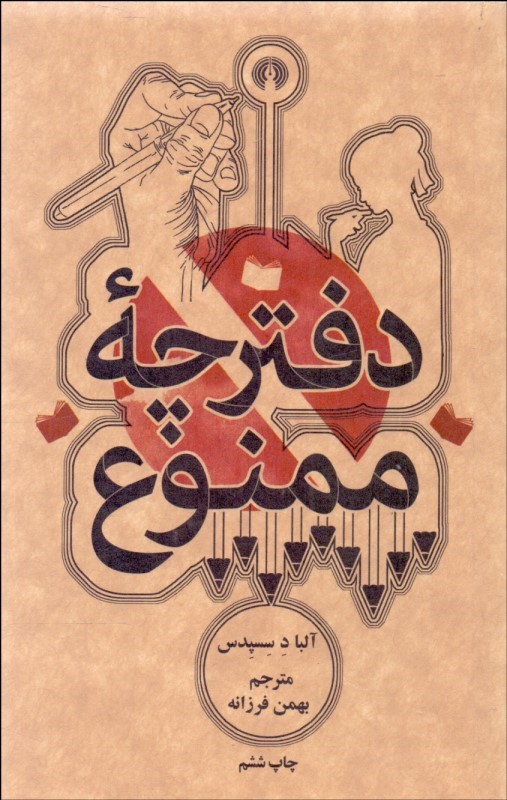 دفترچهٔ
ممنوع
آلبا دِ سِسپِدس
مترجم
بهمن فرزانه
چاپ ششم